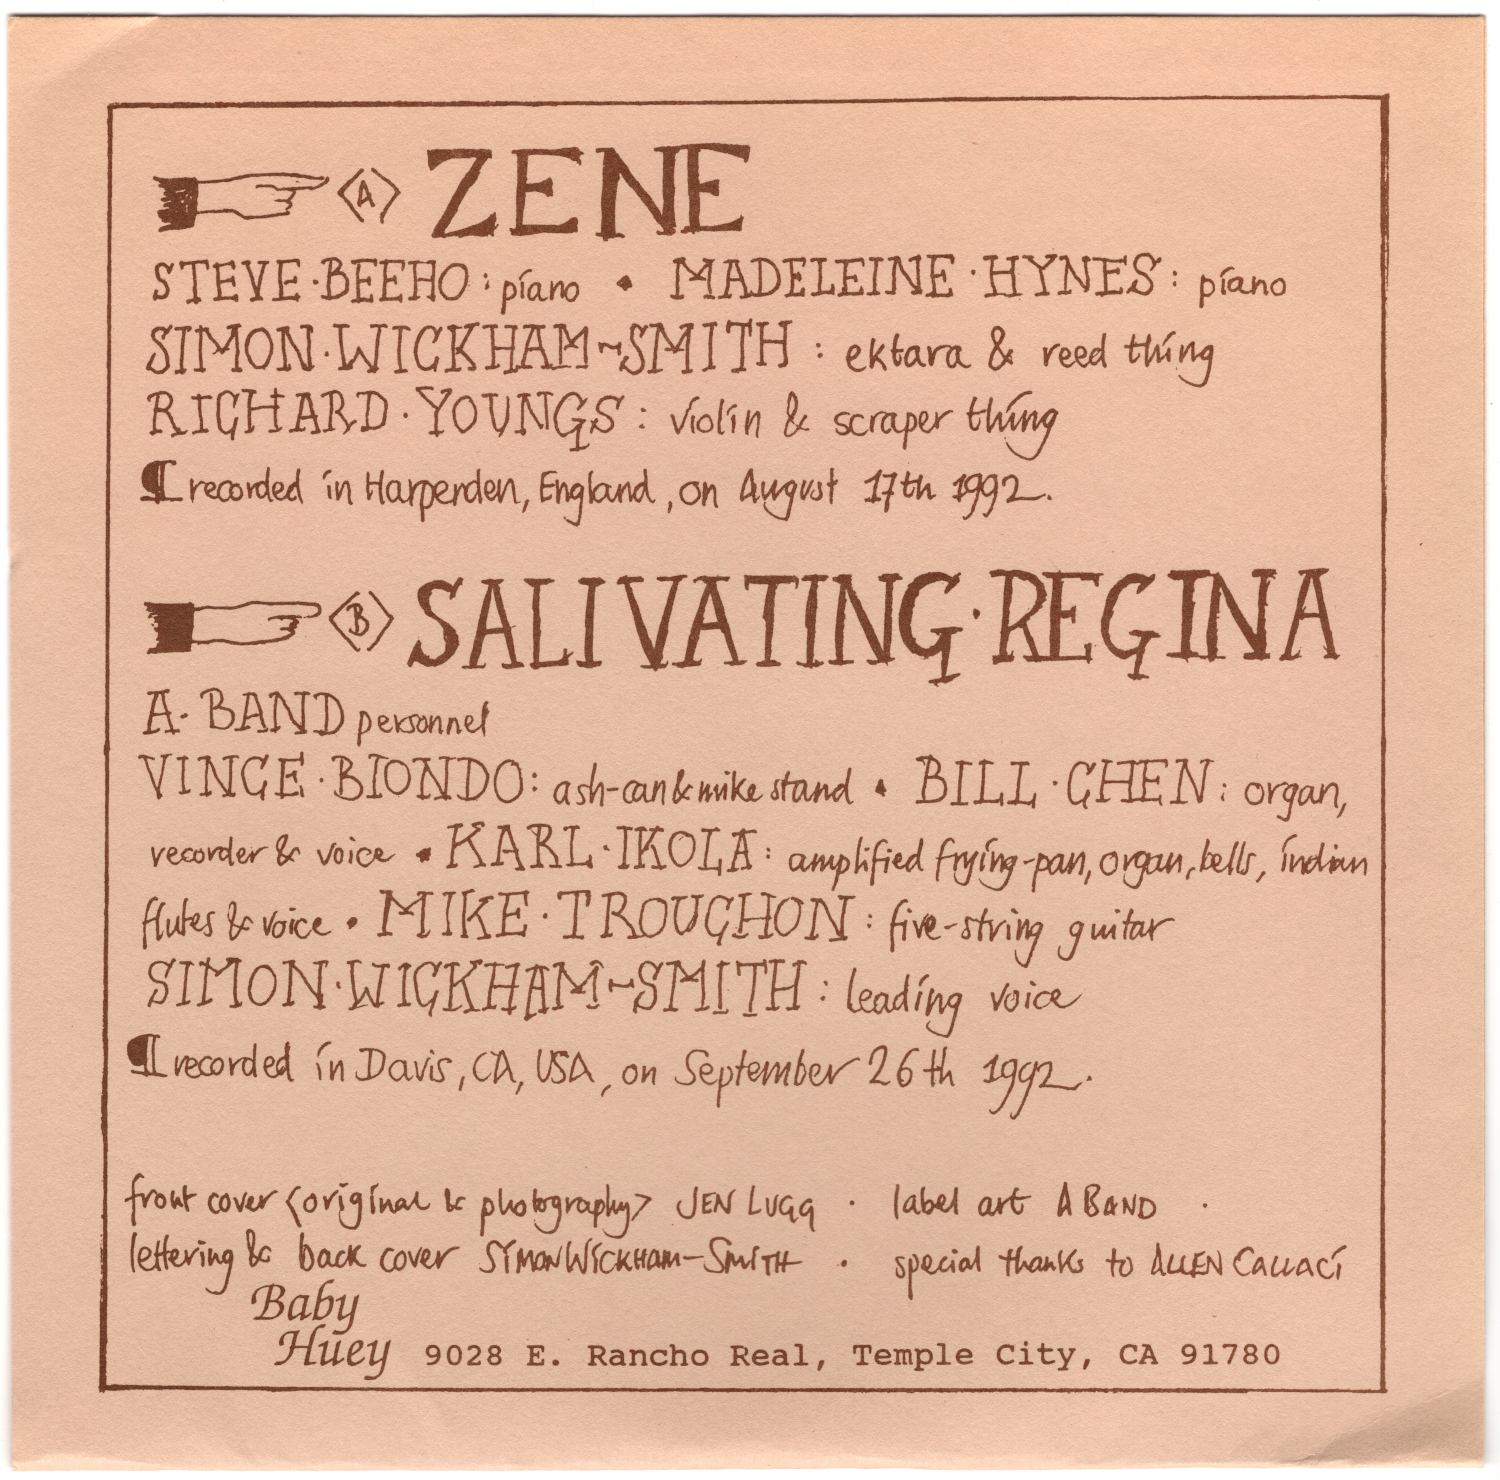 <A> ZENE
STEVE·BEEHO: piano • MADELEINE·HYNES: piano
SIMON·WICKHAM~SMITH: ektara & reed thing
RICHARD·YOUNGS: violin & scraper thing
¶ recorded in Harpenden, England, on August 17th 1992.
<B> SALIVATING·REGINA
A·BAND personnel
VINCE·BIONDO: ash-can & mike stand • BILL·CHEN: organ,
recorder & voice • KARL·IKOLA: amplified frying-pan, organ, bells, indian
flutes & voice • MIKE·TROUCHON: five-string guitar
SIMON·WICKHAM~SMITH: leading voice
¶ recorded in Davis, CA, USA, on September 26th 1992.
front cover <original & photography> JEN LUGG · label art A BAND ·
lettering & back cover SIMON WICKHAM-SMITH · special thanks to ALLEN CALLACI
Baby
Huey 9028 E. Rancho Real, Temple City, CA 91780